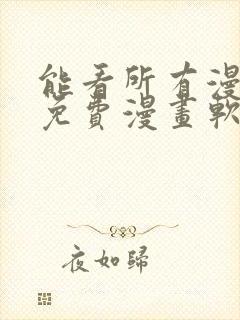 能看所有漫
免費漫畫軟
夜如歸